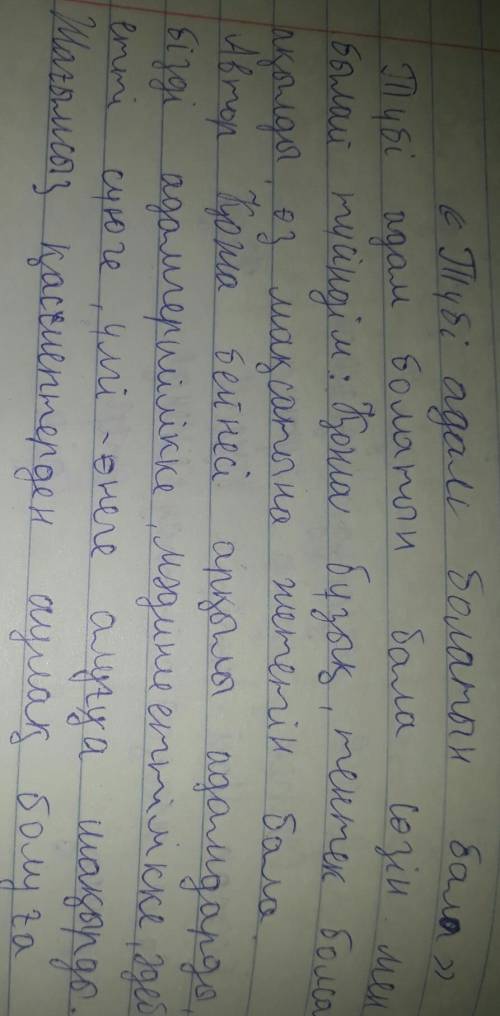 « Түбі адам болатын бала »
Түбі адам болатын бала сөзін мен
былай түйіндім: Қожа бұзық, тентек бола
ақылды, өз мақсатына жететін бала
Автор Қожа бейнесі арқылы адамдарды,
бізді адамгершілікке, мәдениеттілікке, әдеб
етті сүюге, үлгі-өнеге алуға шақырды.
Жағымсыз қасиеттерден аулақ болуға